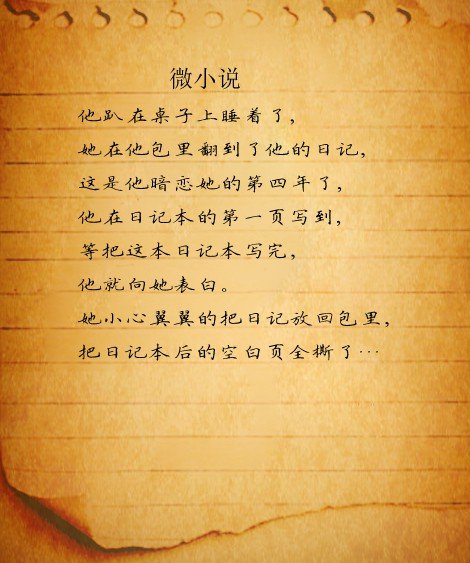 微小说
他趴在桌子上睡着了，
她在他包里翻到了他的日记，
这是他暗恋她的第四年了，
他在日记本的第一页写到，
等把这本日记本写完，
他就向她表白。
她小心翼翼的把日记放回包里，
把日记本后的空白页全撕了…